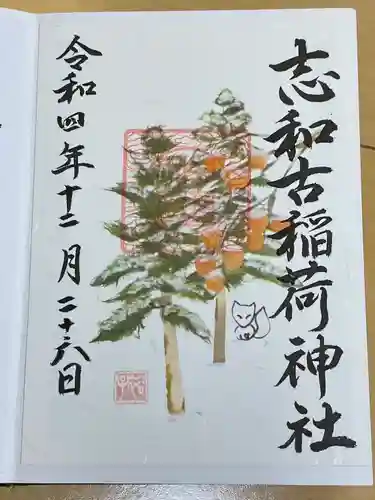 志和古稲荷神社
令和四年十二月二十六日